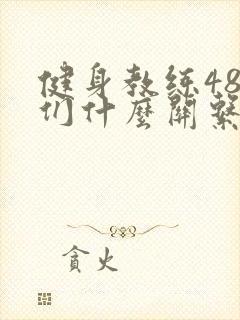 健身教练48
们什麼關繫
貪火